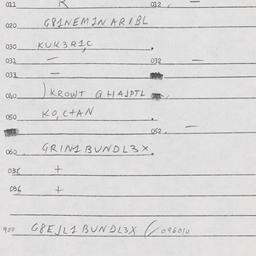 011 R 012 —
020 G81NEM1NARIBL
030 KUK3R1,C
031 — 032 —
033 —
040 )KROWT GHAJPTL
050 KO,C+AN
052 —
060 GRIN1BUNDL3X
035 +
036 +
900 G8EJL1BUNDL3X (/09601U